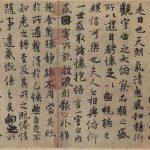 是日也天朗氣清惠風和暢仰
觀宇宙之大俯察品類之盛
所以遊目騁懷足以極視聽之
娛信可樂也夫人之相與俯仰
一世或取諸懷抱悟言一室之內
或因寄所託放浪形骸之外雖
趣舍萬殊靜躁不同當其欣
於所遇暫得於己快然自足不
知老之將至及其所之既惓情
隨事遷感慨係之矣向之